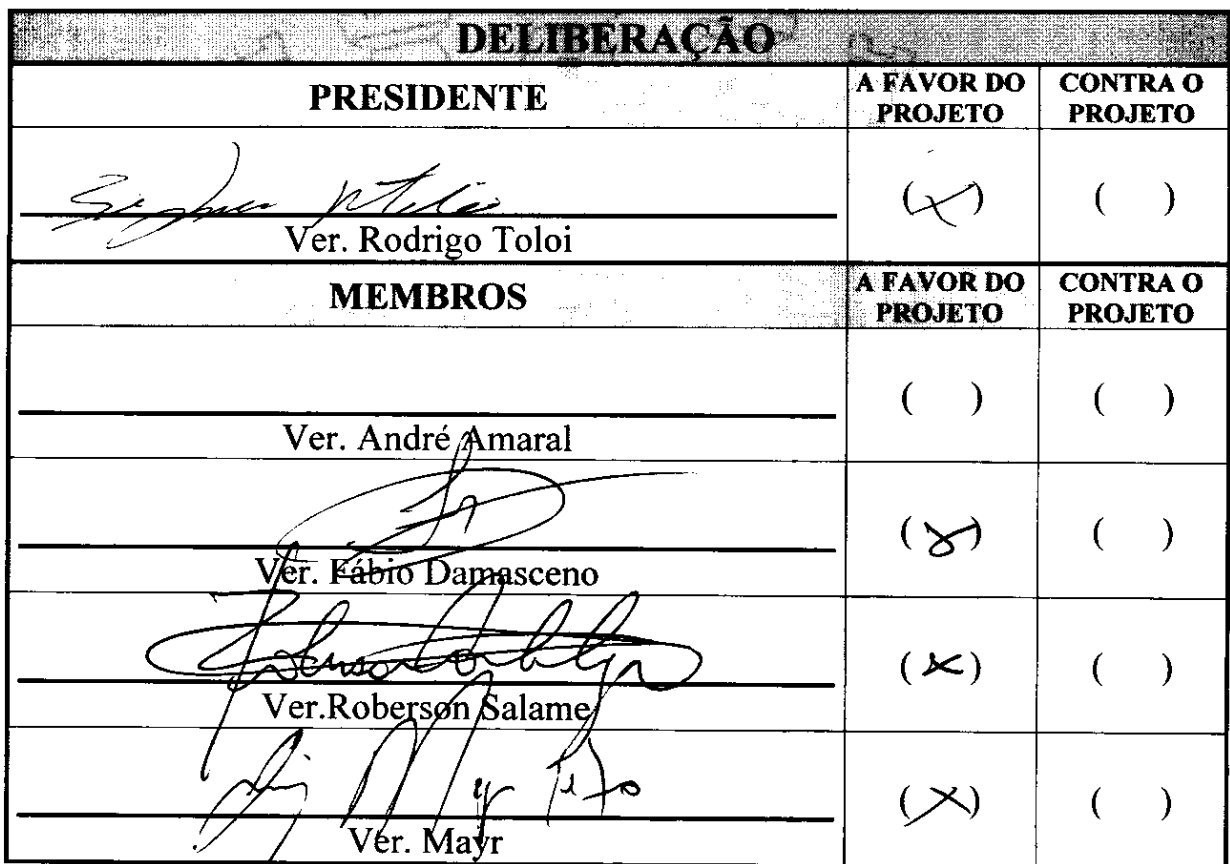 DELIBERAÇÃO
PRESIDENTE
A FAVOR DO PROJETO
CONTRA O PROJETO
Ver. Rodrigo Toloi
(x)
( )
MEMBROS
A FAVOR DO PROJETO
CONTRA O PROJETO
Ver. André Amaral
( )
( )
Ver. Fábio Damasceno
(x)
( )
Ver.Roberson Salame
(x)
( )
Ver. Mayr
(x)
( )